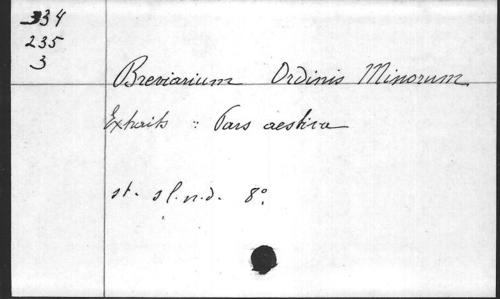 334
235
3
Breviarium Ordinis Minorum.
Extraits : Pars aestiva
st. sl.n.d. 8°.